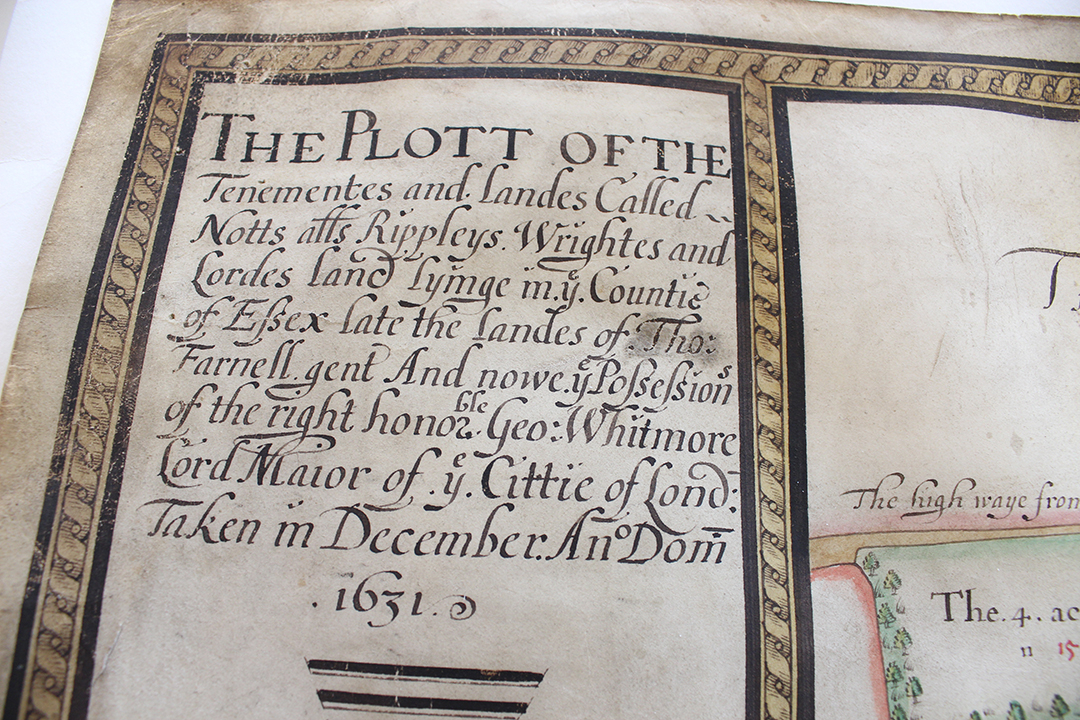 THE PLOTT OF THE
Tenementes and Landes Called
Notts alls Rippleys. Wrightes and
Lordes Land Lyinge in. yͤ. Countie
of Eſsex late the Landes of. Tho:
Farnell. gent And nowe. yͤ Poſseſsionˢ
of the right honor.ᵇˡᵉ Geo: Whitmore
Lord Maior of .yͤ. Cittie of Lond:
Taken in December. Anᵒ Dom̄
.1631.
The high waye from
The. 4. ac
n 15